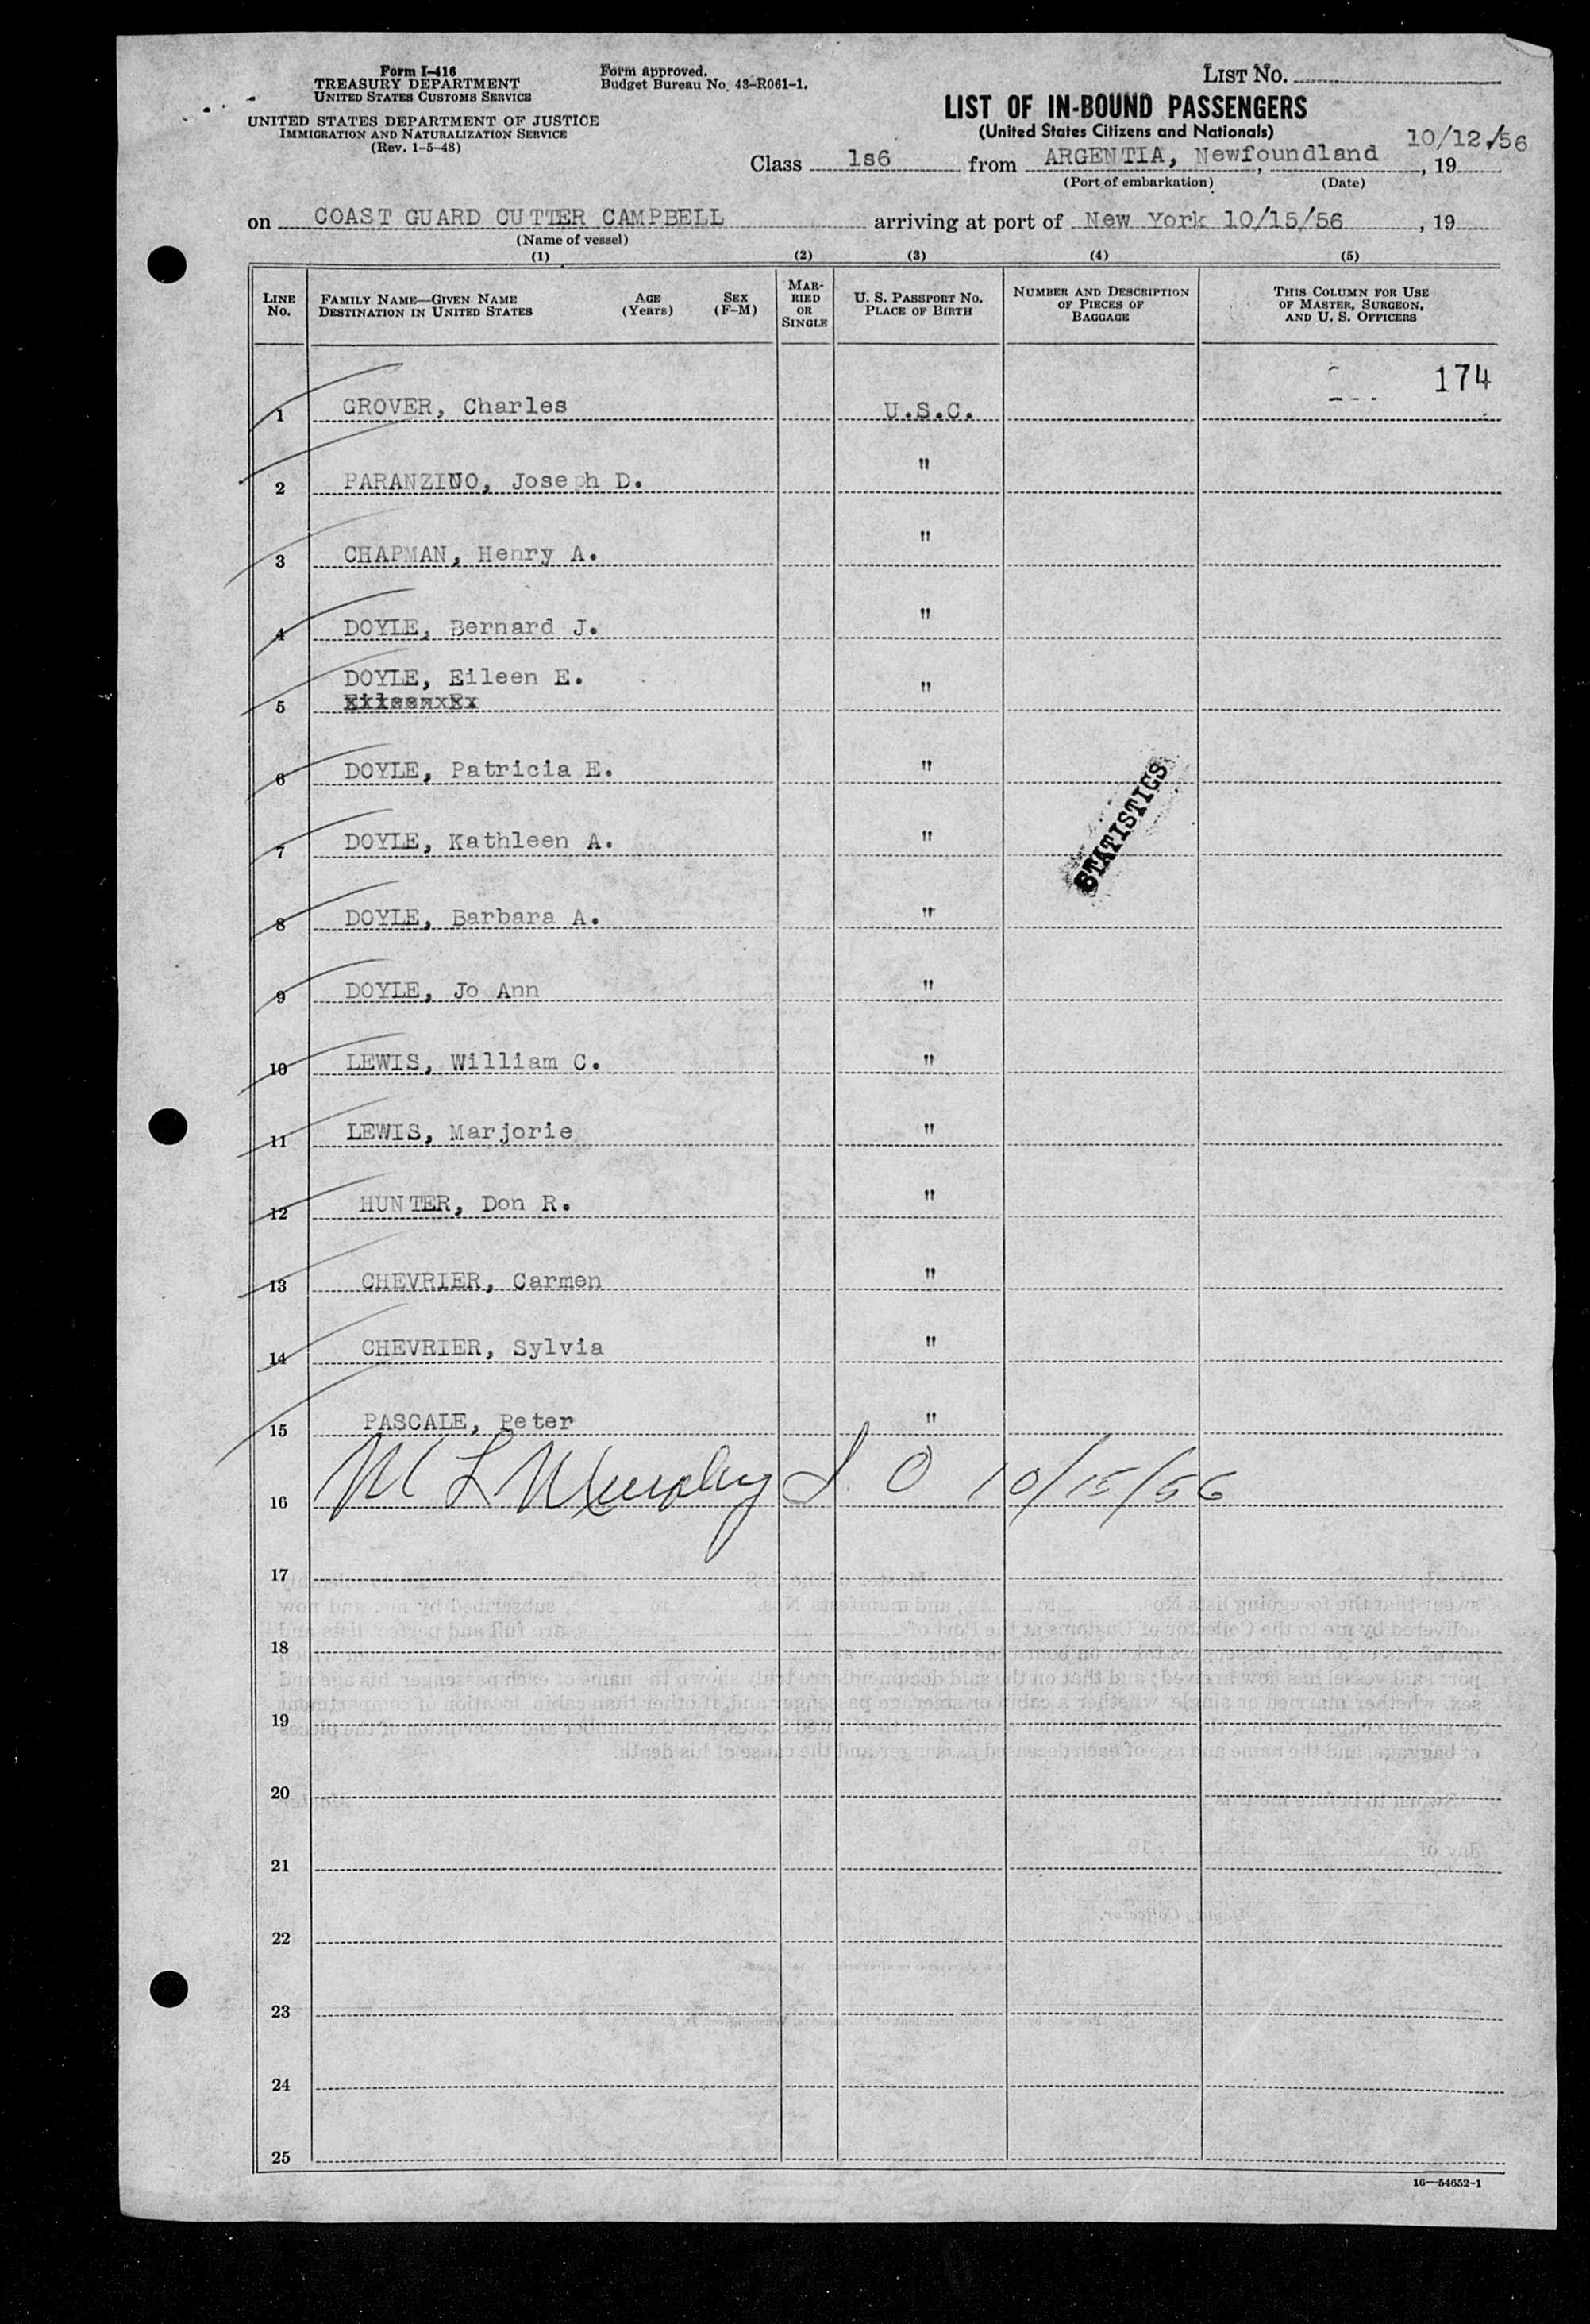 Form I-416
TREASURY DEPARTMENT
UNITED STATES CUSTOMS SERVICE
UNITED STATES DEPARTMENT OF JUSTICE
IMMIGRATION AND NATURALIZATION SERVICE
(Rev. 1-5-48)
Form approved.
Budget Bureau No. 43-R061-1.
LIST NO.
LIST OF IN-BOUND PASSENGERS
(United States Citizens and Nationals)
10/12/56
Class 1s6 from ARGENTIA, Newfoundland, 19
(Port of embarkation) (Date)
on COAST GUARD CUTTER CAMPBELL arriving at port of New York 10/15/56, 19
(Name of vessel)
(1) (2) (3) (4) (5)
LINE NO. FAMILY NAME—GIVEN NAME DESTINATION IN UNITED STATES AGE (Years) SEX (F-M) MARRIED OR SINGLE U. S. PASSPORT NO. PLACE OF BIRTH NUMBER AND DESCRIPTION OF PIECES OF BAGGAGE THIS COLUMN FOR USE OF MASTER, SURGEON, AND U. S. OFFICERS
174
1 GROVER, Charles U.S.C.
2 PARANZINO, Joseph D. "
3 CHAPMAN, Henry A. "
4 DOYLE, Bernard J. "
DOYLE, Eileen E.
5 "
6 DOYLE, Patricia E. "
7 DOYLE, Kathleen A. "
STATISTICS
8 DOYLE, Barbara A. "
9 DOYLE, Jo Ann "
10 LEWIS, William C. "
11 LEWIS, Marjorie "
12 HUNTER, Don R. "
13 CHEVRIER, Carmen "
14 CHEVRIER, Sylvia "
15 PASCALE, Peter "
16 M L Murphy I. O 10/15/56
17
18
19
20
21
22
23
24
25
16—54652-1